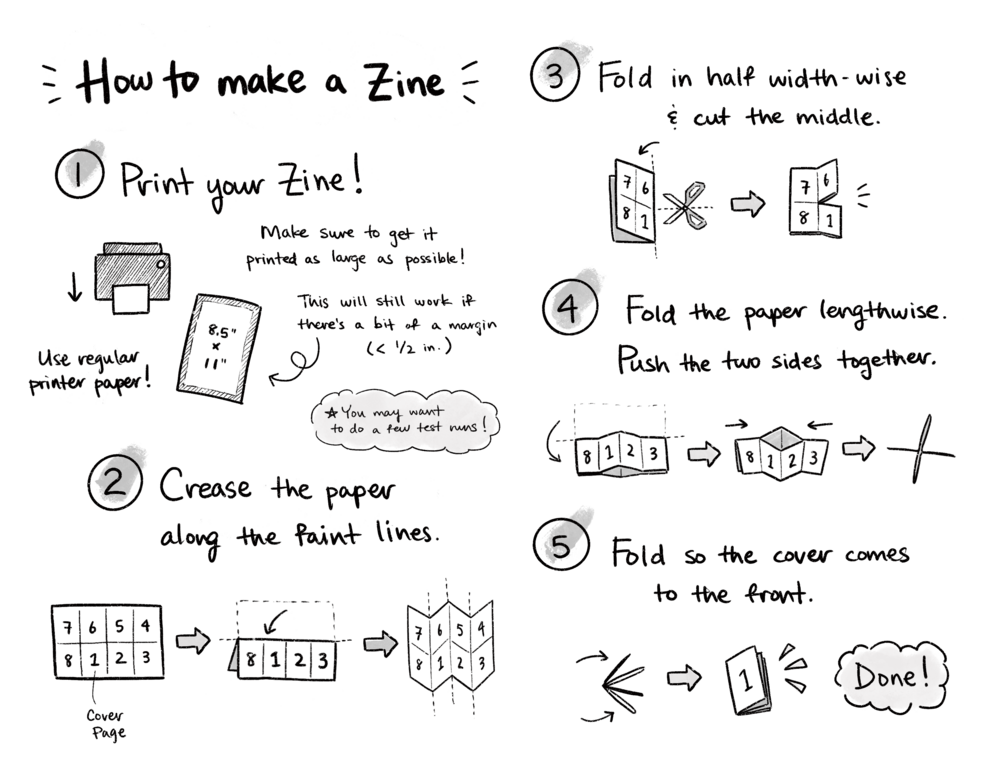 How to make a Zine
1 Print your Zine!
Make sure to get it
printed as large as possible!
This will still work if
there's a bit of a margin
(< 1/2 in.)
8.5"
x
11"
Use regular
printer paper!
★ You may want
to do a few test runs!
2 Crease the paper
along the faint lines.
7 6 5 4
8 1 2 3
Cover
Page
8 1 2 3
7 6 5 4
8 1 2 3
3 Fold in half width-wise
& cut the middle.
7 6
8 1
7 6
8 1
4 Fold the paper lengthwise.
Push the two sides together.
8 1 2 3
8 1 2 3
5 Fold so the cover comes
to the front.
1
Done!